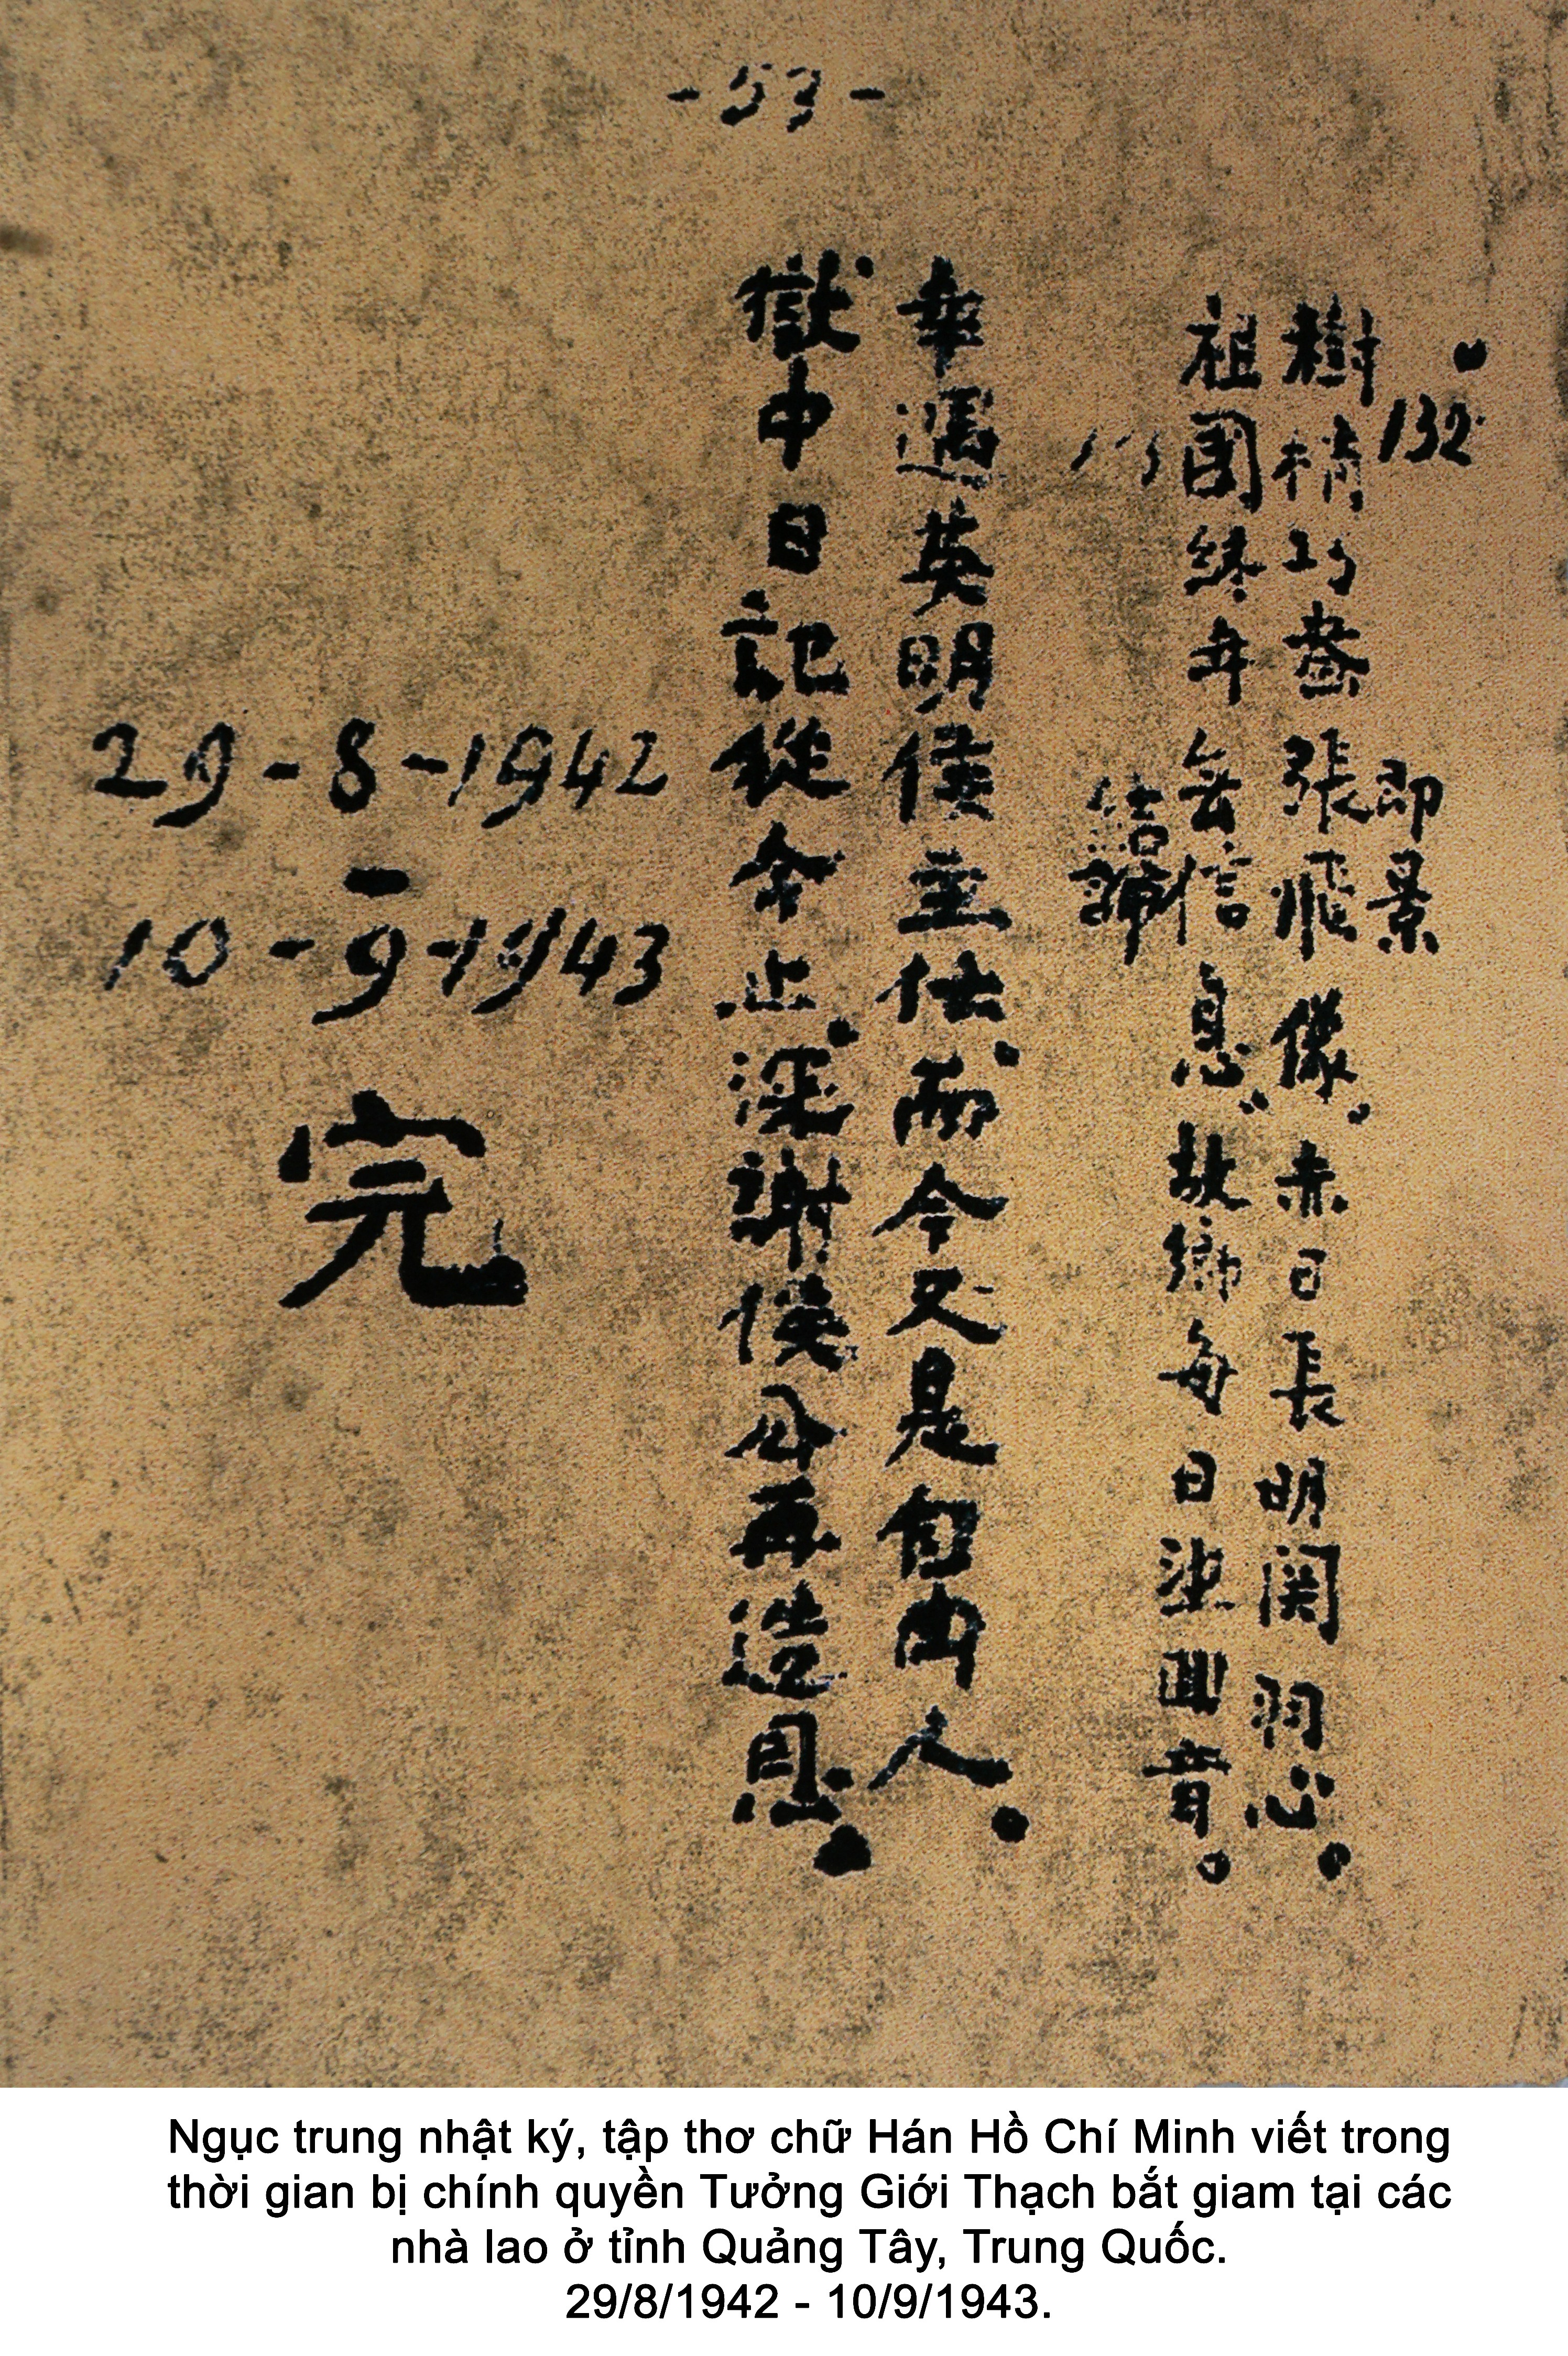 - 53 -
132 即景
樹梢巧畫張飛像。赤日長明関羽心。
祖國終年無信息。故鄉每日望囬音。
結論
幸遇英明侯主任、而今又是自由人。
獄中日記從今止、深謝侯公再造恩。
29-8-1942
-
10-9-1943
完
Ngục trung nhật ký, tập thơ chữ Hán Hồ Chí Minh viết trong
thời gian bị chính quyền Tưởng Giới Thạch bắt giam tại các
nhà lao ở tỉnh Quảng Tây, Trung Quốc.
29/8/1942 - 10/9/1943.